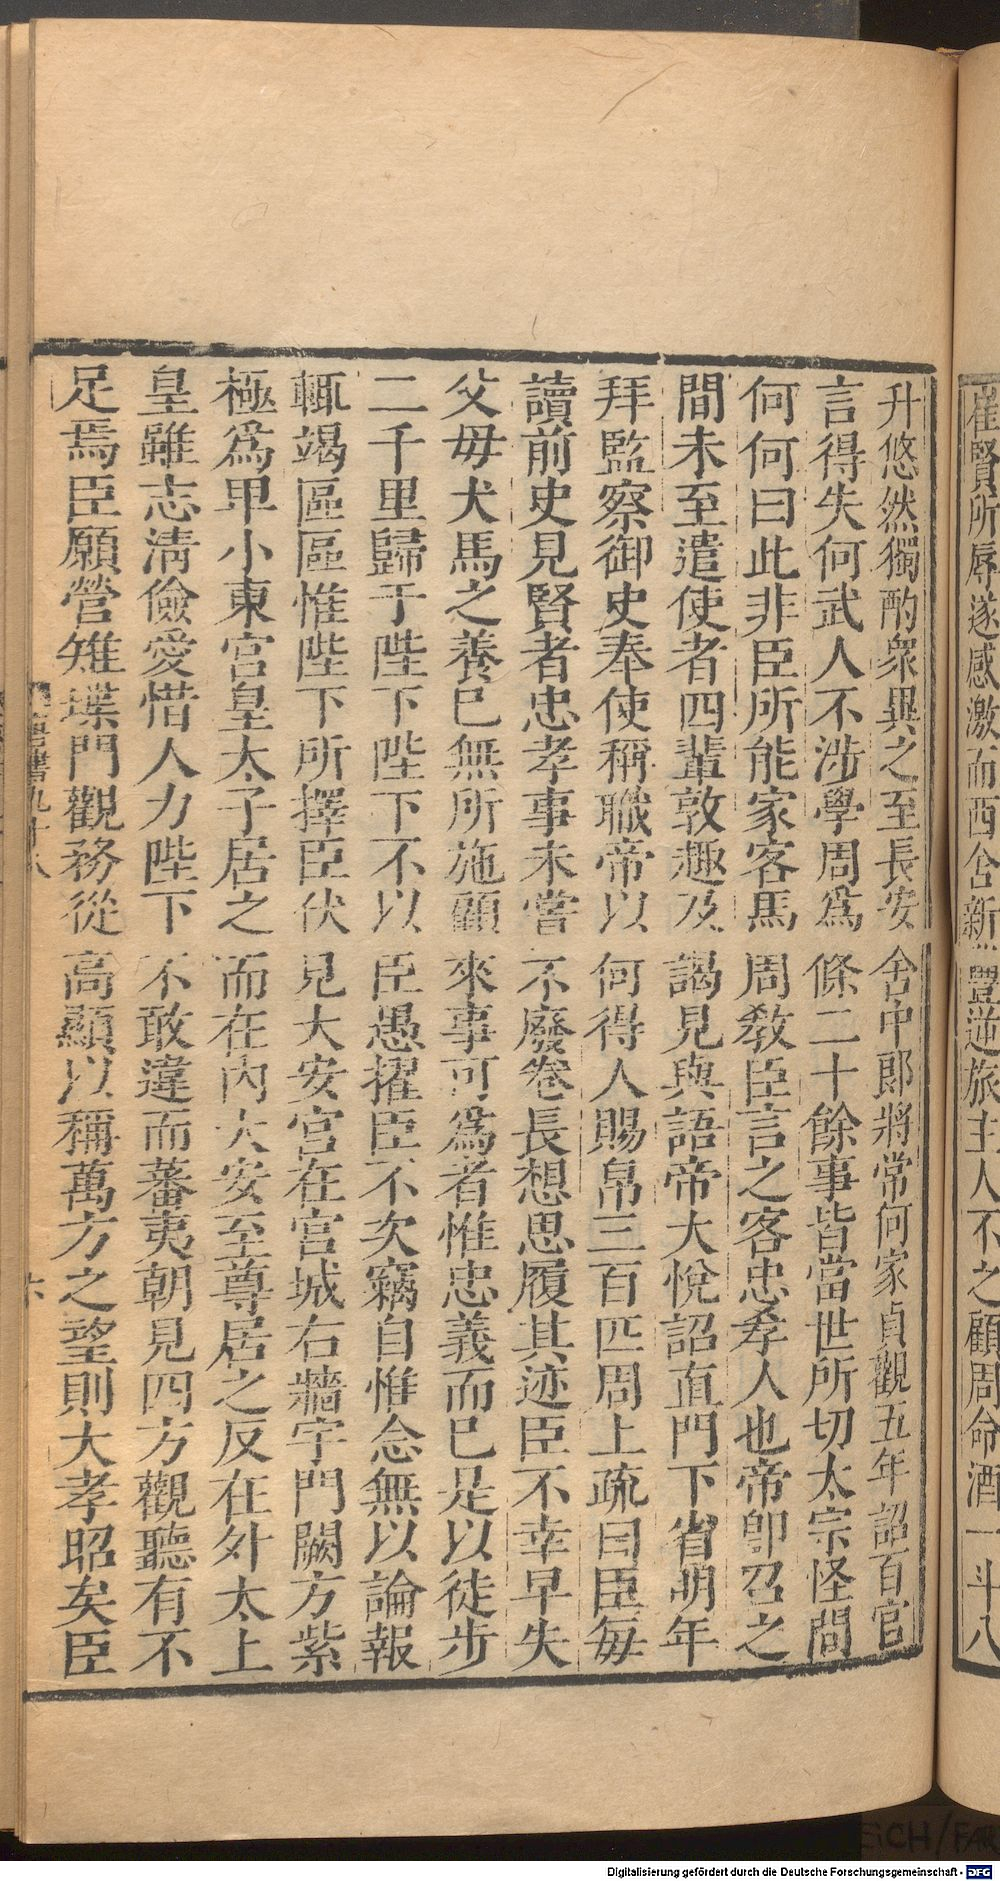 崔賢所辱遂感激而西舍新豐逆旅主人不之顧周命酒一斗八
升悠然獨酌衆異之至長安舍中郎將常何家貞觀五年詔百官
言得失何武人不涉學周爲條二十餘事皆當世所切太宗怪問
何何曰此非臣所能家客馬周敎臣言之客忠孝人也帝卽召之
間未至遣使者四輩敦趣及謁見與語帝大悅詔直門下省明年
拜監察御史奉使稱職帝以何得人賜帛三百匹周上疏曰臣每
讀前史見賢者忠孝事未嘗不廢卷長想思履其迹臣不幸早失
父母犬馬之養已無所施顧來事可爲者惟忠義而已是以徒步
二千里歸于陛下陛下不以臣愚擢臣不次竊自惟念無以論報
輒竭區區惟陛下所擇臣伏見大安宮在宮城右牆宇門闕方紫
極爲卑小東宮皇太子居之而在內大安至尊居之反在外太上
皇雖志淸儉愛惜人力陛下不敢違而蕃夷朝見四方觀聽有不
足焉臣願營雉堞門觀務從高顯以稱萬方之望則大孝昭矣臣
唐書九十八
六
EICH/FAR
Digitalisierung gefördert durch die Deutsche Forschungsgemeinschaft - DFG